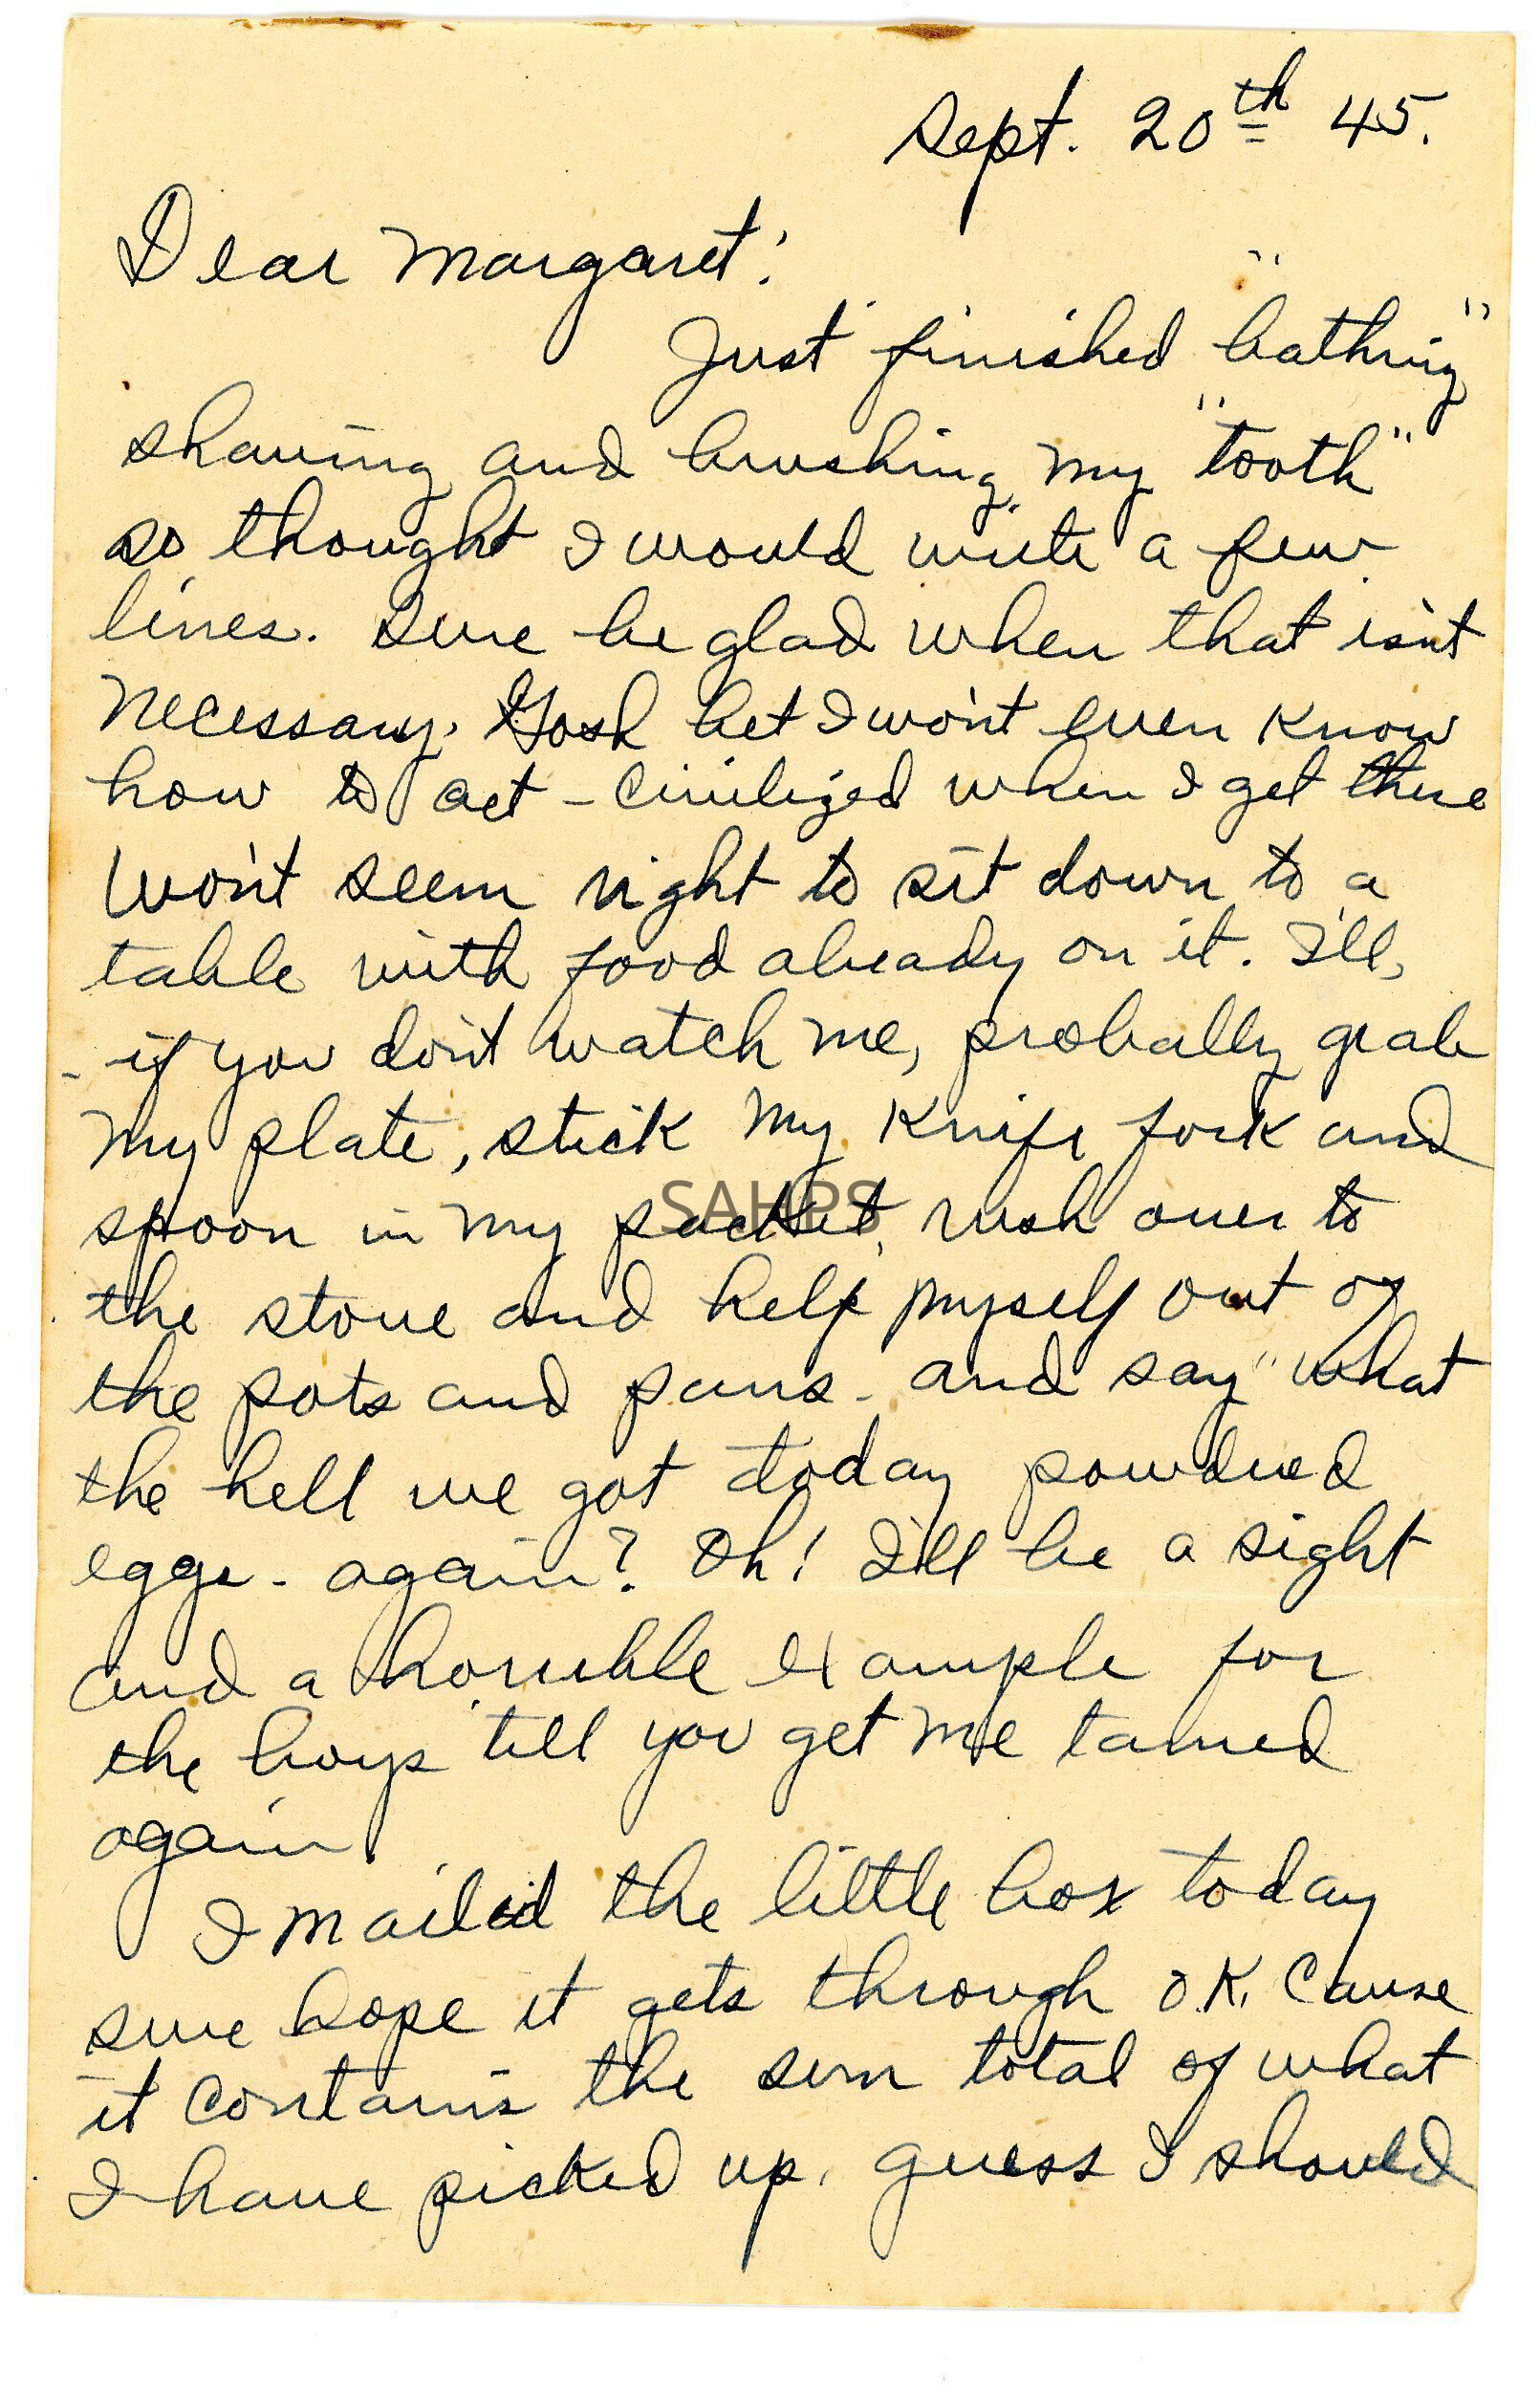 Sept. 20th 45.
Dear Margaret:
Just finished "bathing"
shaving and brushing my "tooth"
so thought I would write a few
lines. Sure be glad when that isn't
necessary. Gosh bet I won't even know
how to act - civilized when I get there
won't seem right to sit down to a
table with food already on it. I'll,
- if you don't watch me, probably grab
my plate, stick my knife fork and
spoon in my pocket, rush over to
the stove and help myself out of
the pots and pans - and say "what
the hell we got today powdred
eggs - again? Oh! I'll be a sight
and a horrible example for
the boys 'till you get me tamed
again.
I mailed the little box today
sure hope it gets through O.K. Cause
it contains the sum total of what
I have picked up, guess I should
SAHPS